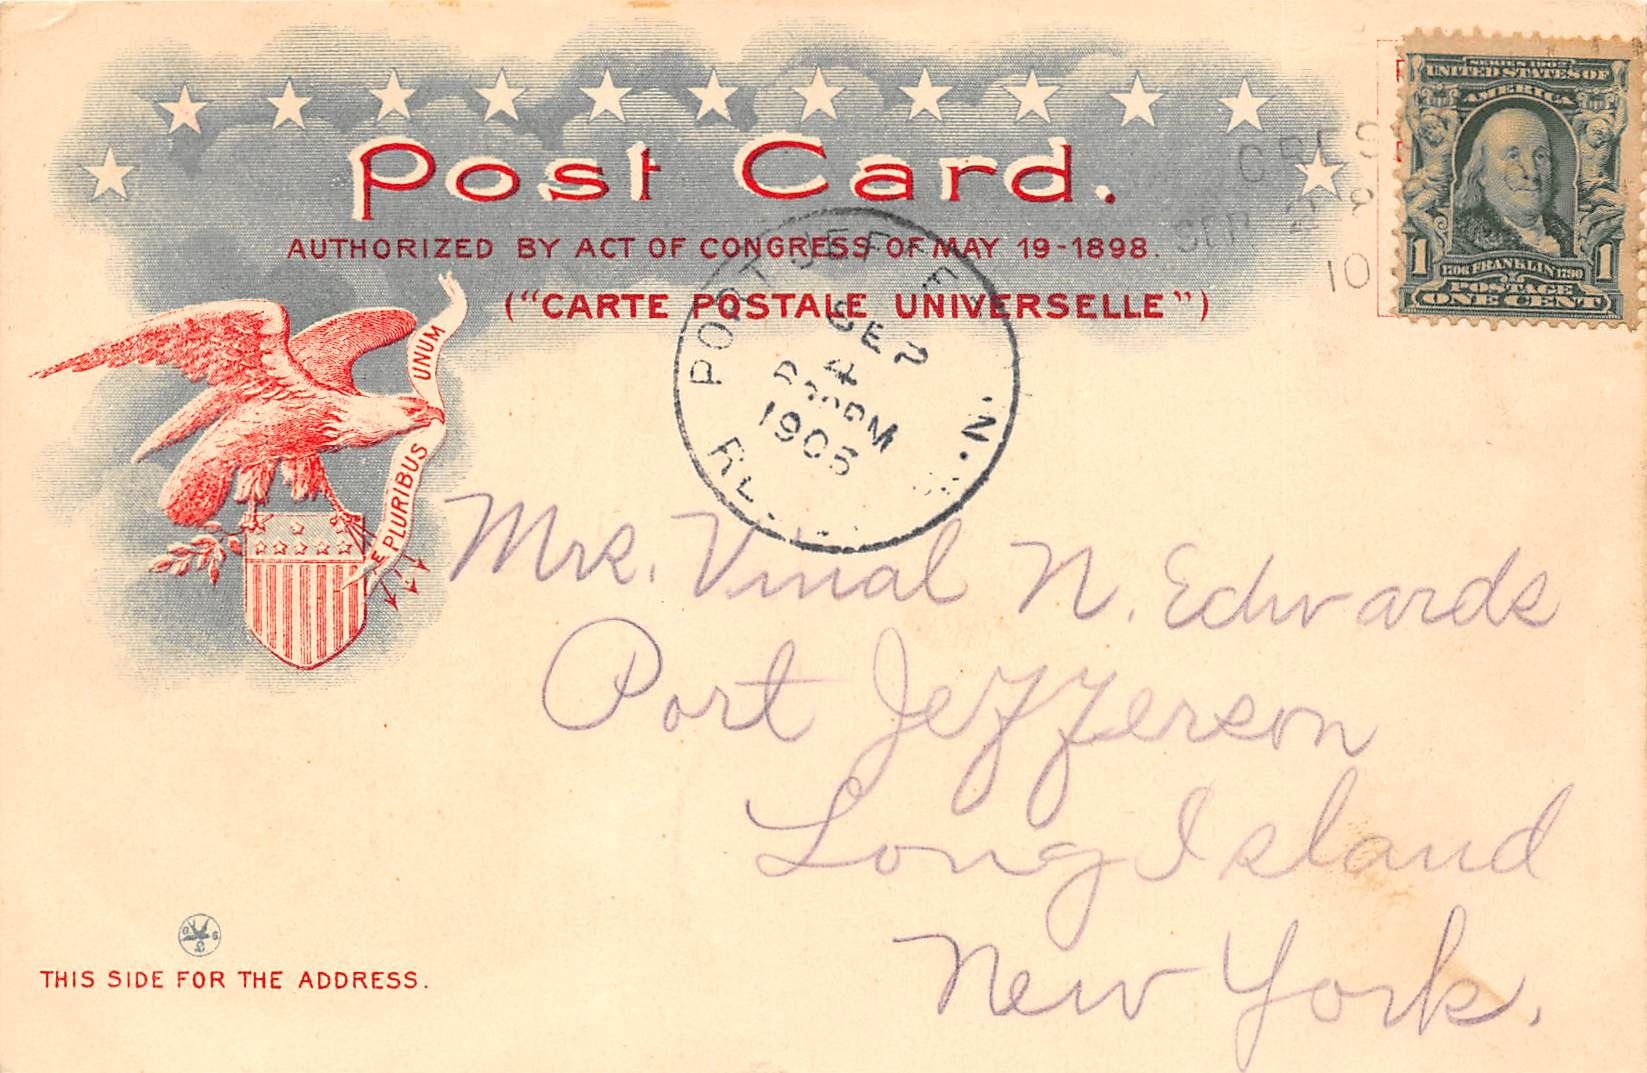 Post Card.
AUTHORIZED BY ACT OF CONGRESS OF MAY 19-1898.
("CARTE POSTALE UNIVERSELLE")
SERIES 1902
UNITED STATES OF
AMERICA
1 1
1706 FRANKLIN 1790
POSTAGE
ONE CENT
SEP
10
E PLURIBUS UNUM
PORT JEFFE N.
SEP
4
PM
1905
Mrs. Vinal N. Edwards
Port Jefferson
Long Island
New York.
THIS SIDE FOR THE ADDRESS.